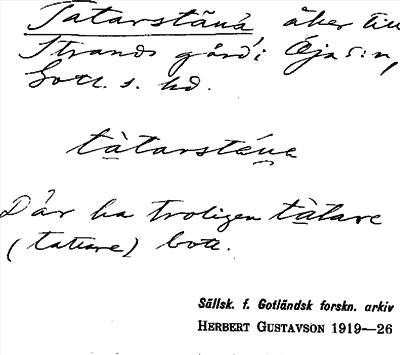 Tatarstänä, åker till
Strands gård i Öja s:n,
Gotl. s. hd.
tàtarsténe
Där ha troligen tàtare
(tattare) bott.
Sällsk. f. Gotländsk forskn. arkiv
HERBERT GUSTAVSON 1919—26